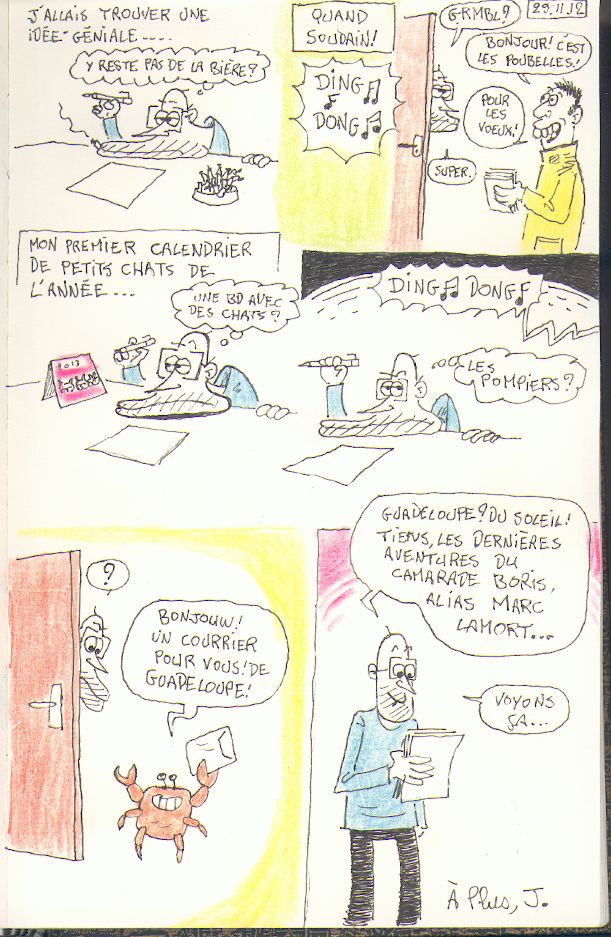 J'ALLAIS TROUVER UNE
IDÉE GÉNIALE.....
Y RESTE PAS DE LA BIÈRE?
QUAND
SOUDAIN!
DING
DONG
GRMBL?
29.11.12
BONJOUR! C'EST
LES POUBELLES!
POUR
LES
VOEUX!
SUPER.
MON PREMIER CALENDRIER
DE PETITS CHATS DE
L'ANNÉE...
UNE BD AVEC
DES CHATS?
2013
DING DONG
LES
POMPIERS?
?
BONJOUW!
UN COURRIER
POUR VOUS! DE
GUADELOUPE!
GUADELOUPE? DU SOLEIL!
TIENS, LES DERNIÈRES
AVENTURES DU
CAMARADE BORIS,
ALIAS MARC
LAMORT...
VOYONS
ÇA...
À Plus, J.